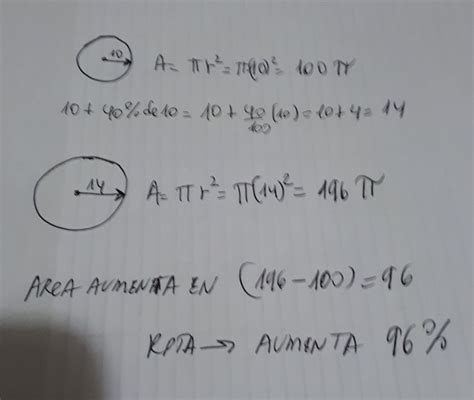 10
A = πr² = π(10)² = 100π
10 + 40% de 10 = 10 + 40/100 (10) = 10 + 4 = 14
14
A = πr² = π(14)² = 196π
AREA AUMENTA EN (196 - 100) = 96
RPTA → AUMENTA 96%